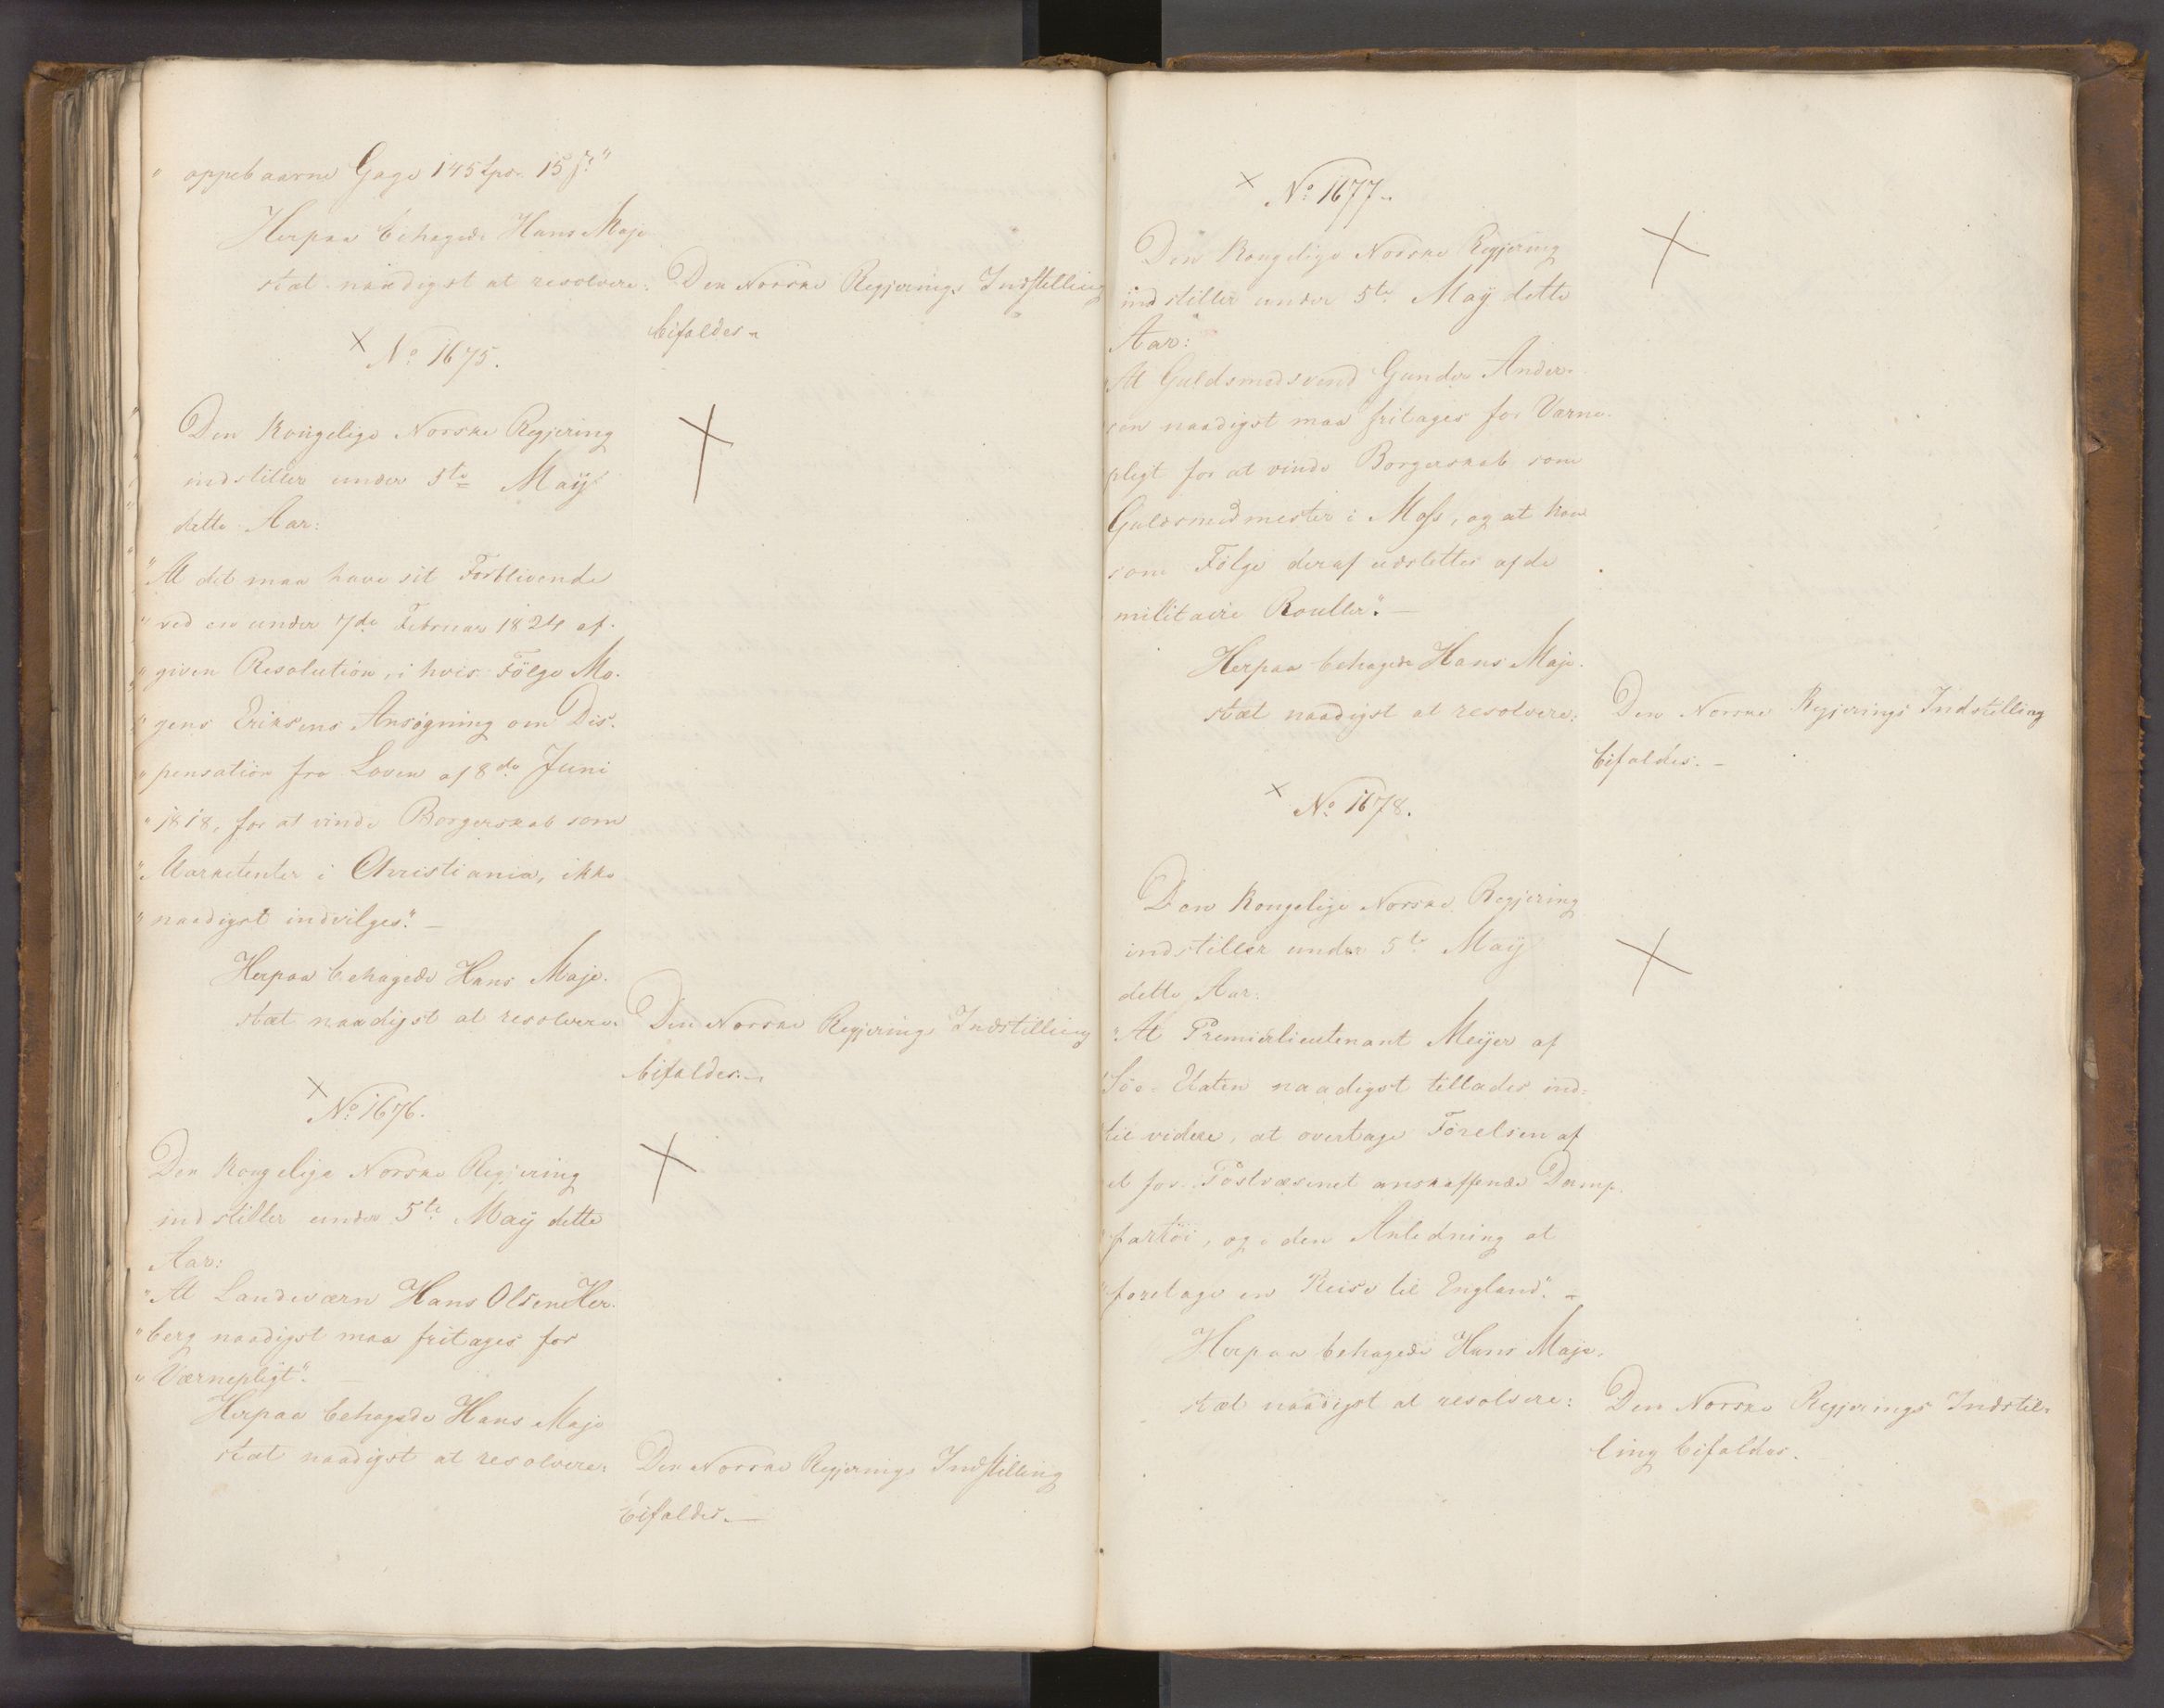 " oppebaarne Gage 145 Spd. 15 ʃ"
Herpaa behagede Hans Maje-
stæt naadigst at resolvere: Den Norske Regjerings Indstilling
bifaldes.
× No 1675.
Den Kongelige Norske Regjering
indstiller under 5te Maÿ
dette Aar:
"At det maa have sit Forblivende
" ved en under 7de Februar 1824 af-
" given Resolution, i hvis Fölge Mo-
" gens Eriksens Ansögning om Dis-
" pensation fra Loven af 8de Juni
" 1818, for at vinde Borgerskab som
" Marketenter i Christiania, ikke
" naadigst indvilges". —
Herpaa behagede Hans Maje-
stæt naadigst at resolvere: Den Norske Regjerings Indstilling
bifaldes. —
× No 1676.
Den Kongelige Norske Regjering
indstiller under 5te Maÿ dette
Aar:
"At Landeværn Hans Olsen Her-
" berg naadigst maa fritages for
" Værnepligt". —
Herpaa behagede Hans Maje-
stæt naadigst at resolvere: Den Norske Regjerings Indstilling
bifaldes. —
× No 1677.
Den Kongelige Norske Regjering
indstiller under 5te Maÿ dette
Aar:
At Guldsmedsvend Gunder Ander-
sen naadigst maa fritages for Værne-
pligt for at vinde Borgerskab som
Guldsmedmester i Moss, og at han
som Fölge deraf udslettes af de
militaire Rouller". —
Herpaa behagede Hans Maje-
stæt naadigst at resolvere: Den Norske Regjerings Indstilling
bifaldes. —
× No 1678.
Den Kongelige Norske Regjering
indstiller under 5te Maÿ
dette Aar:
"At Premierlieutenant Meÿer af
Söe-Etaten naadigst tillades ind-
til videre, at overtage Förelsen af
et for Postvæsenet anskaffende Damp-
fartöi, og i den Anledning at
"foretage en Reise til England". —
Herpaa behagede Hans Maje-
stæt naadigst at resolvere: Den Norske Regjerings Indstil-
ling bifaldes.